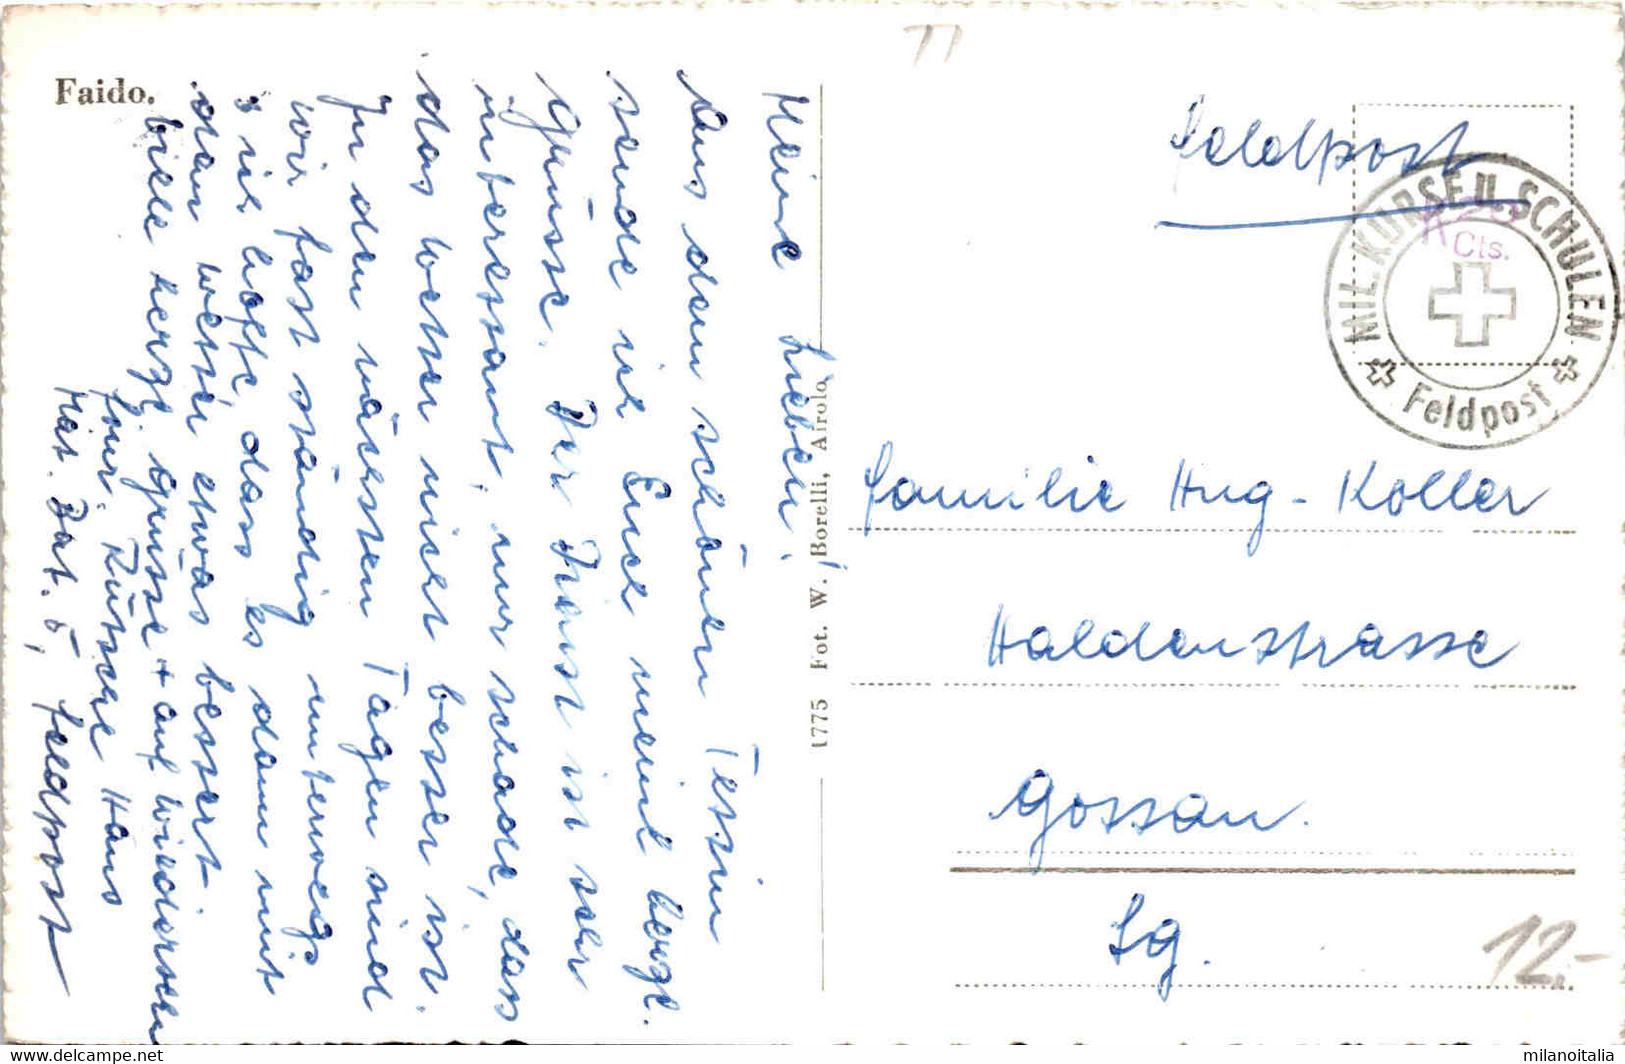 Faido.
Meine Lieben!
Aus dem schönen Tessin
sende ich Euch meine herzl.
Grüsse. Der Dienst ist sehr
interessant, nur schade, dass
das Wetter nicht besser ist.
In den nächsten Tagen sind
wir fast ständig unterwegs
& ich hoffe, dass es dann mit
dem Wetter etwas bessert.
Viele herzl. Grüsse + auf Wiedersehen
Four. Rütsche Hans
Mat. Bat. 5, Feldpost
1775 Fot. W. Borelli, Airolo
Feldpost
MIL. KURSE U. SCHULEN
Feldpost
Cts.
Familie Hug-Koller
Haldenstrasse
Gossau.
Sg.
12.-
milanoitalia